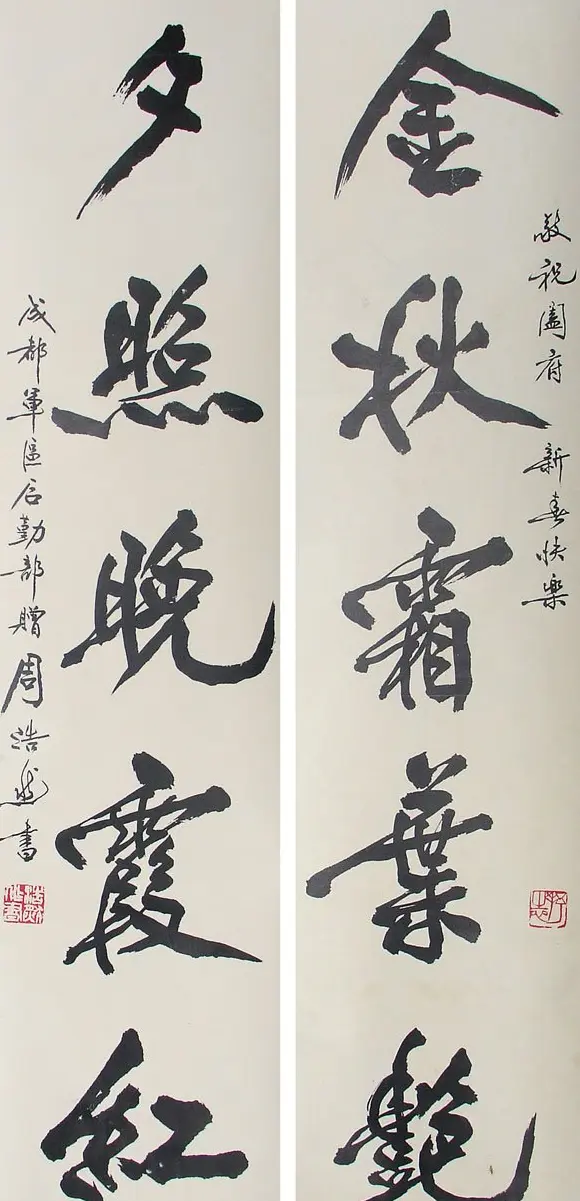 敬祝阖府 新春快樂
金秋霜葉艷
夕照晚霞红
成都軍區后勤部贈周浩然書